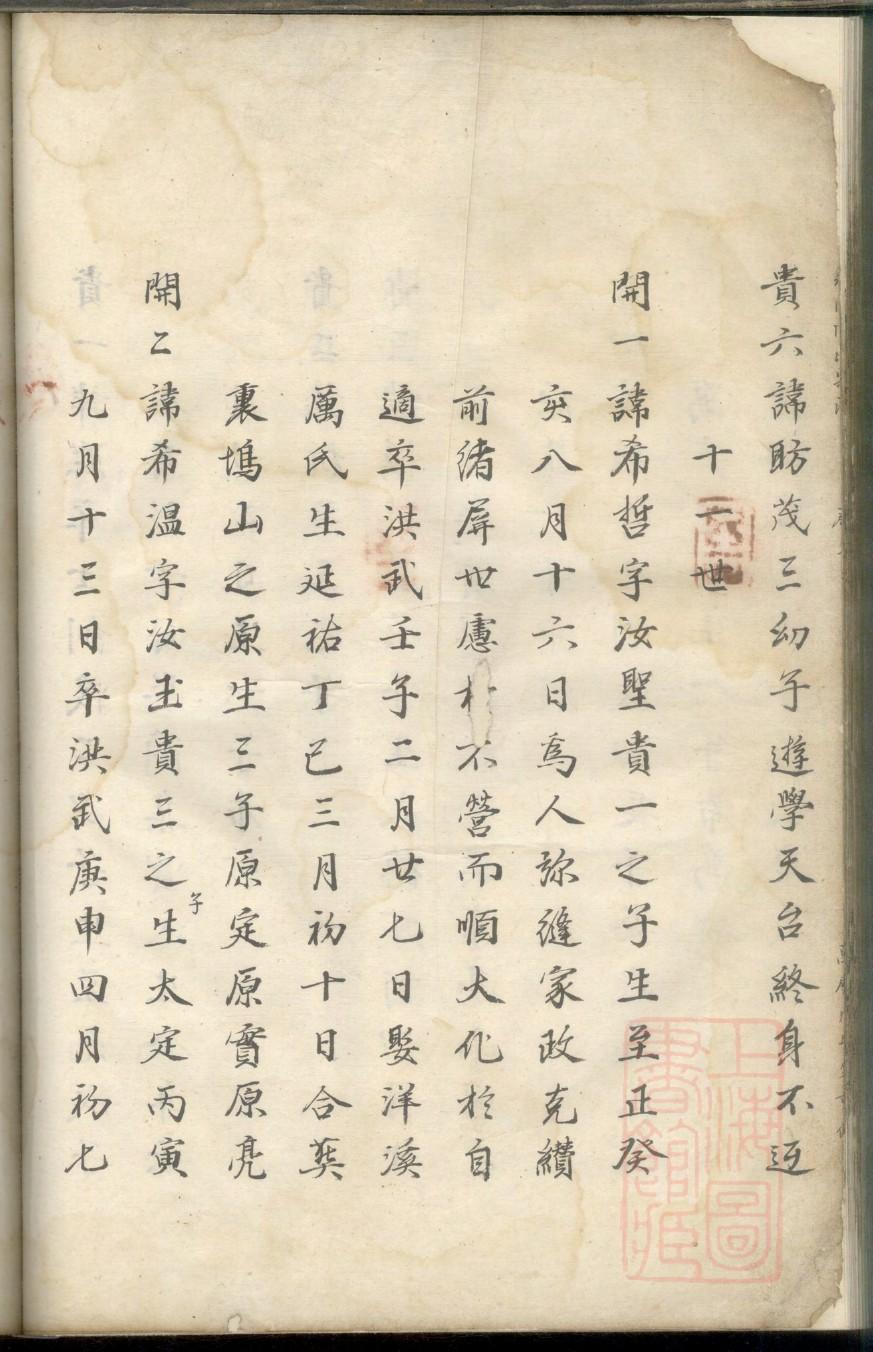 貴六諱昉茂三幼子遊學天台終身不返
十一世
開一諱希哲字汝聖貴一之子生至正癸
亥八月十六日為人弥縫家政克纘
前緒屏世慮不營而順大化於自
適卒洪武壬子二月廿七日娶洋溪
厲氏生延祐丁巳三月初十日合葬
裏塢山之原生三子原定原實原亮
開二諱希溫字汝玉貴三之子生太定丙寅
九月十三日卒洪武庚申四月初七
上海圖書館藏